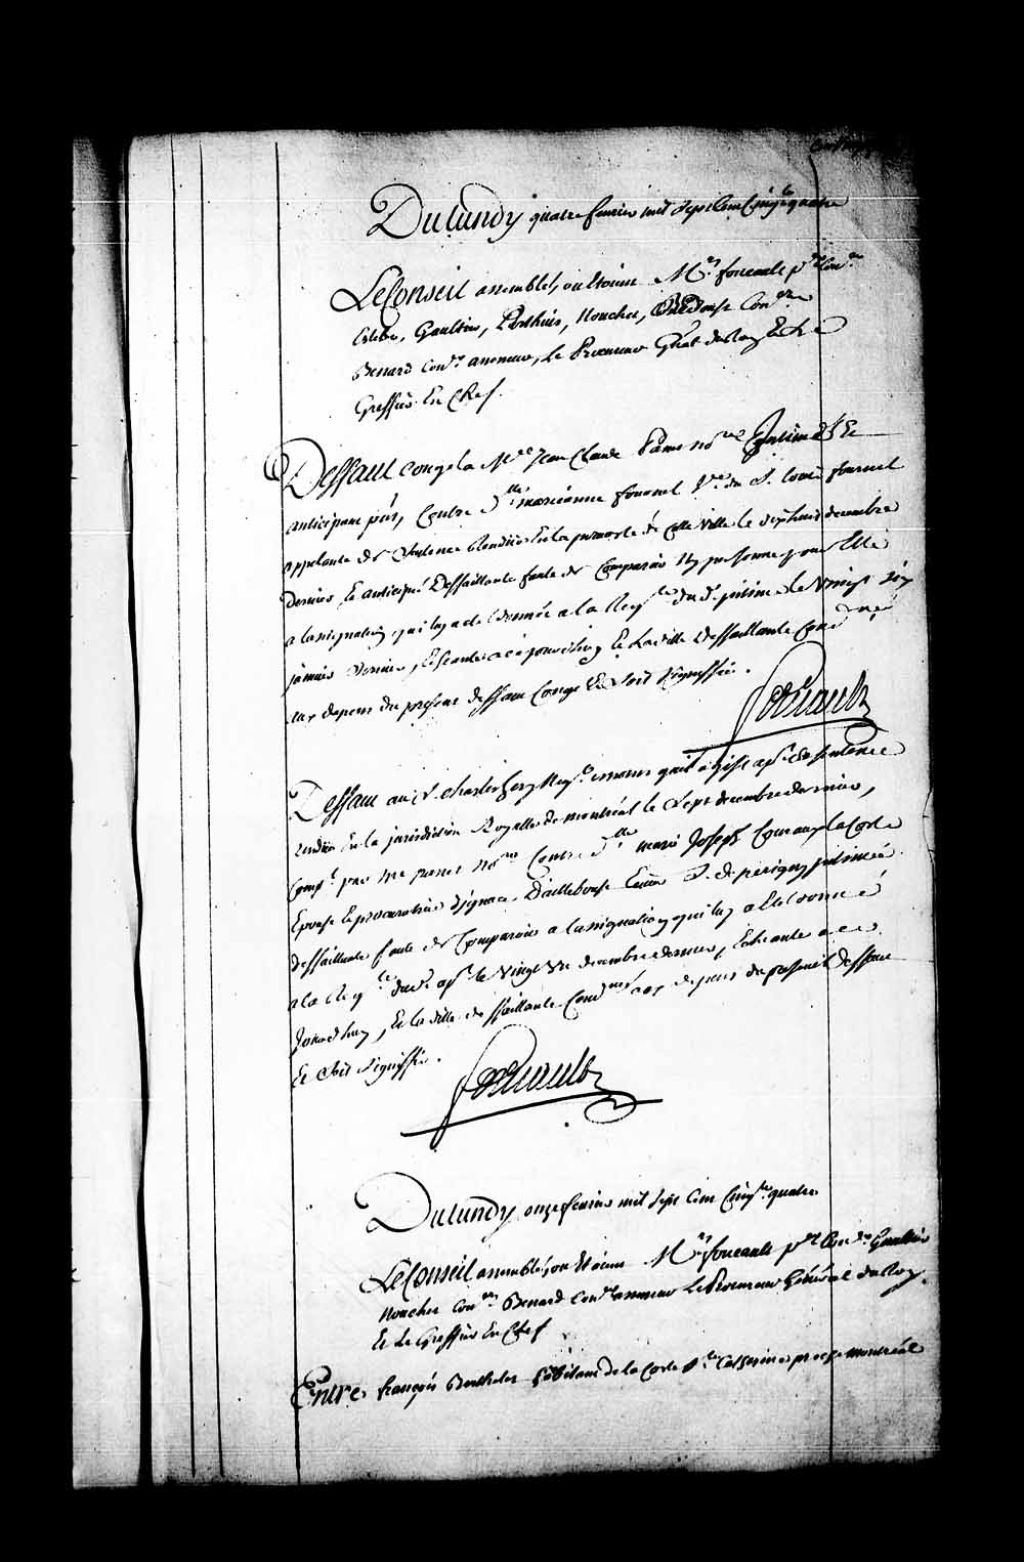 Du Lundy quatre fevrier mil sept cent cinq.te quatre
Le Conseil assemblé, ou Etoient M.rs foucault p.er Con.er
Estebe, Gaultier, Perthuis, Nouchet, Con.ers
Benard Con.er assesseur, Le Procureur G'ral du Roy Et Le
Greffier En Chef.
Deffaut congé a M.e Jean Claude Panet no.re Intimé Et
anticipant p'nt, Contre D.lle marianne fournel V.ve du S. Louis fournel
appelante de Sentence Rendüe En la prevosté de cette Ville le dixhuit decembre
dernier, Et anticipée Deffaillante faute de Comparoir ny personne pour Elle
a l'assignation qui luy a Eté donnée a la Req.te dud. S. intimé le Vingt six
janvier dernier, Echeante a ce jourd'huy, Et Lad. D.lle deffaillante Cond.née
aux depens du present deffaut Congé Et Soit Signiffié.
Deffaut au S. Charles hery Neg.t appelant de Sentence
rendüe En la jurisdiction Royalle de montréal le Sept decembre dernier,
Comp.t par M.e panet No.re Contre D.lle marie Joseph Coteraux la Coste
Epouse Et procuratrice d'ignace Dailleboust Ecuier S. de perigny intimée
deffaillante faute de Comparoir a l'assignation qui luy a Eté donnée
a la Req.te dud. ap.t le Vingt un decembre dernier, Echeante a ce
Jourd'huy, Et lad. D.lle deffaillante Cond.née aux depens du present deffaut
Et Soit Signiffié.
Du Lundy onze fevrier mil Sept Cent Cinq.te quatre
Le Conseil assemblé, ou Etoient M.rs foucault p.er Con.er Gaultier
Nouchet Con.ers Benard Con.er assesseur Le Procureur Général du Roy
Et Le Greffier En Chef
Entre françois Berthelet habitant de la Coste S.te Catherine pres de montréal